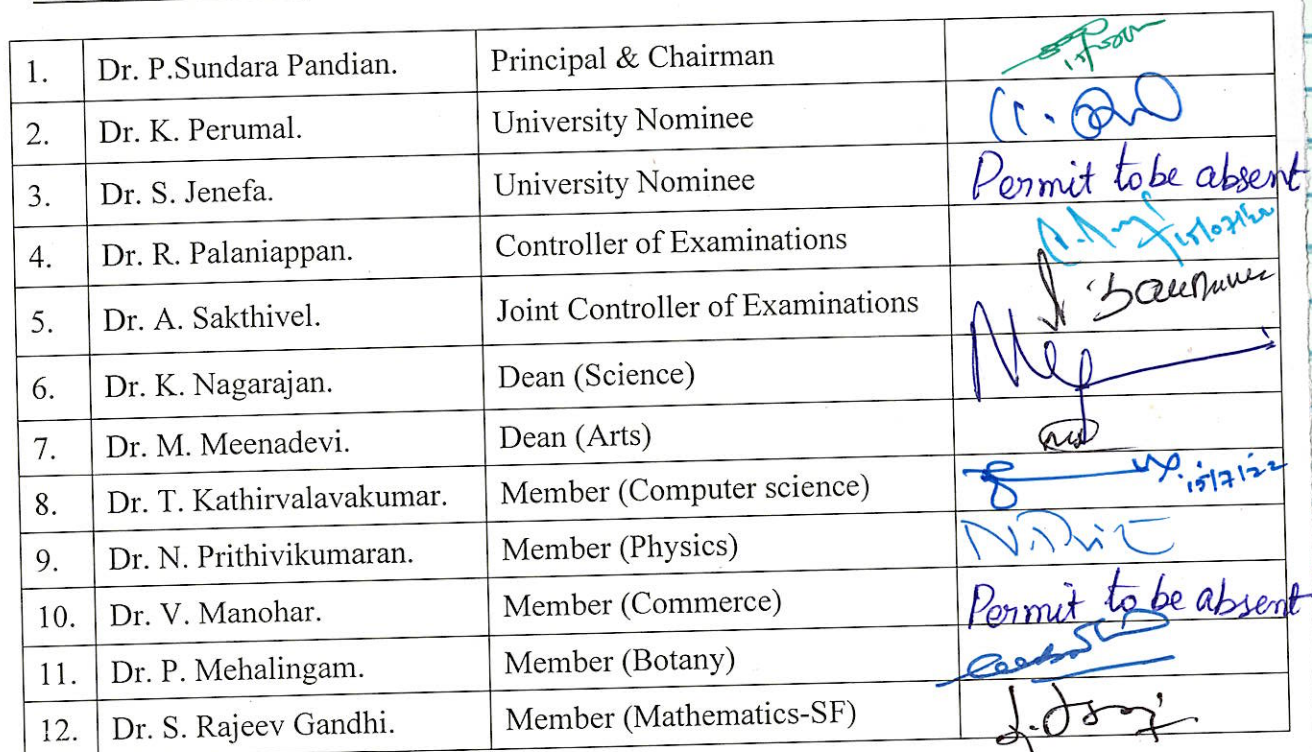 1. Dr. P.Sundara Pandian. Principal & Chairman
2. Dr. K. Perumal. University Nominee
3. Dr. S. Jenefa. University Nominee Permit to be absent
4. Dr. R. Palaniappan. Controller of Examinations 15/07/22
5. Dr. A. Sakthivel. Joint Controller of Examinations
6. Dr. K. Nagarajan. Dean (Science)
7. Dr. M. Meenadevi. Dean (Arts)
8. Dr. T. Kathirvalavakumar. Member (Computer science) 15/7/22
9. Dr. N. Prithivikumaran. Member (Physics)
10. Dr. V. Manohar. Member (Commerce) Permit to be absent
11. Dr. P. Mehalingam. Member (Botany)
12. Dr. S. Rajeev Gandhi. Member (Mathematics-SF)